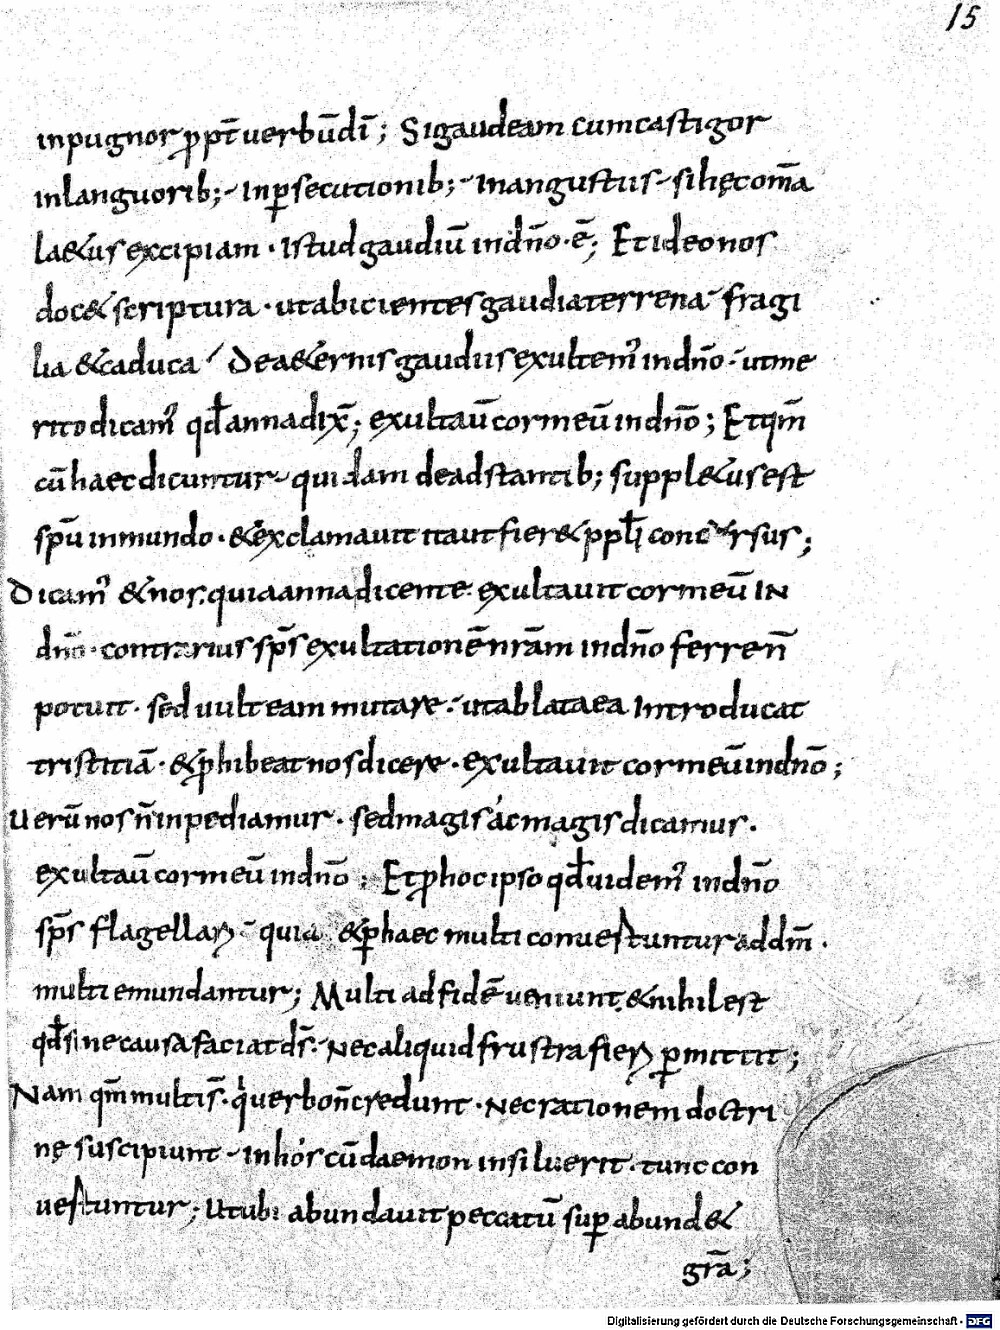 15
inpugnor ꝓpt̄ uerbū dī; Si gaudeam cum castigor
in languorib; in p̱secutionib; in angustiis si hęc om̄a
laetus excipiam · istud gaudiū in dn̄o · ē; Et ideo nos
docet scriptura · ut abicientes gaudia terrena fragi
lia & caduca / De aeternis gaudiis exultem' in dn̄o · ut me
rito dicam' qđ anna dix̄; exultau̅ cor meū in dn̄o; Et qm̄
cū haec dicuntur quidam de adstantib; suppletus est
spū inmundo · & exclamauit ita ut fieret ppl̄i concursus;
Dicam' & nos. quia anna dicente · exultauit cor meū IN
dn̄o · contrarius sps̄ exultationē nrām in dn̄o ferre n̄
potuit · sed uult eam mutare · ut ablata ea introducat
tristitiā · & ꝓhibeat nos dicere · exultauit cor meū in dn̄o;
Uerū nos n̄ inpediamur · sed magis ac magis dicamus ·
exultau̅ cor meū in dn̄o; Et ꝓ hoc ipso qđ uidem' in dn̄o
sps̄ flagellari quia & ꝑ haec multi conuertuntur ad dm̄ ·
multi emundantur; Multi ad fidē ueniunt, & nihil est
qđ sine causa faciat ds̄ · Nec aliquid frustra fieri ꝑmittit;
Nam qm̄ multis · qi uerbo n̄ credunt · nec rationem doctri
nę suscipiunt in hos cū daemon insiluerit · tunc con
uertuntur; Ut ubi abundauit peccatū suꝑabundet
grā;
Digitalisierung gefördert durch die Deutsche Forschungsgemeinschaft - DFG